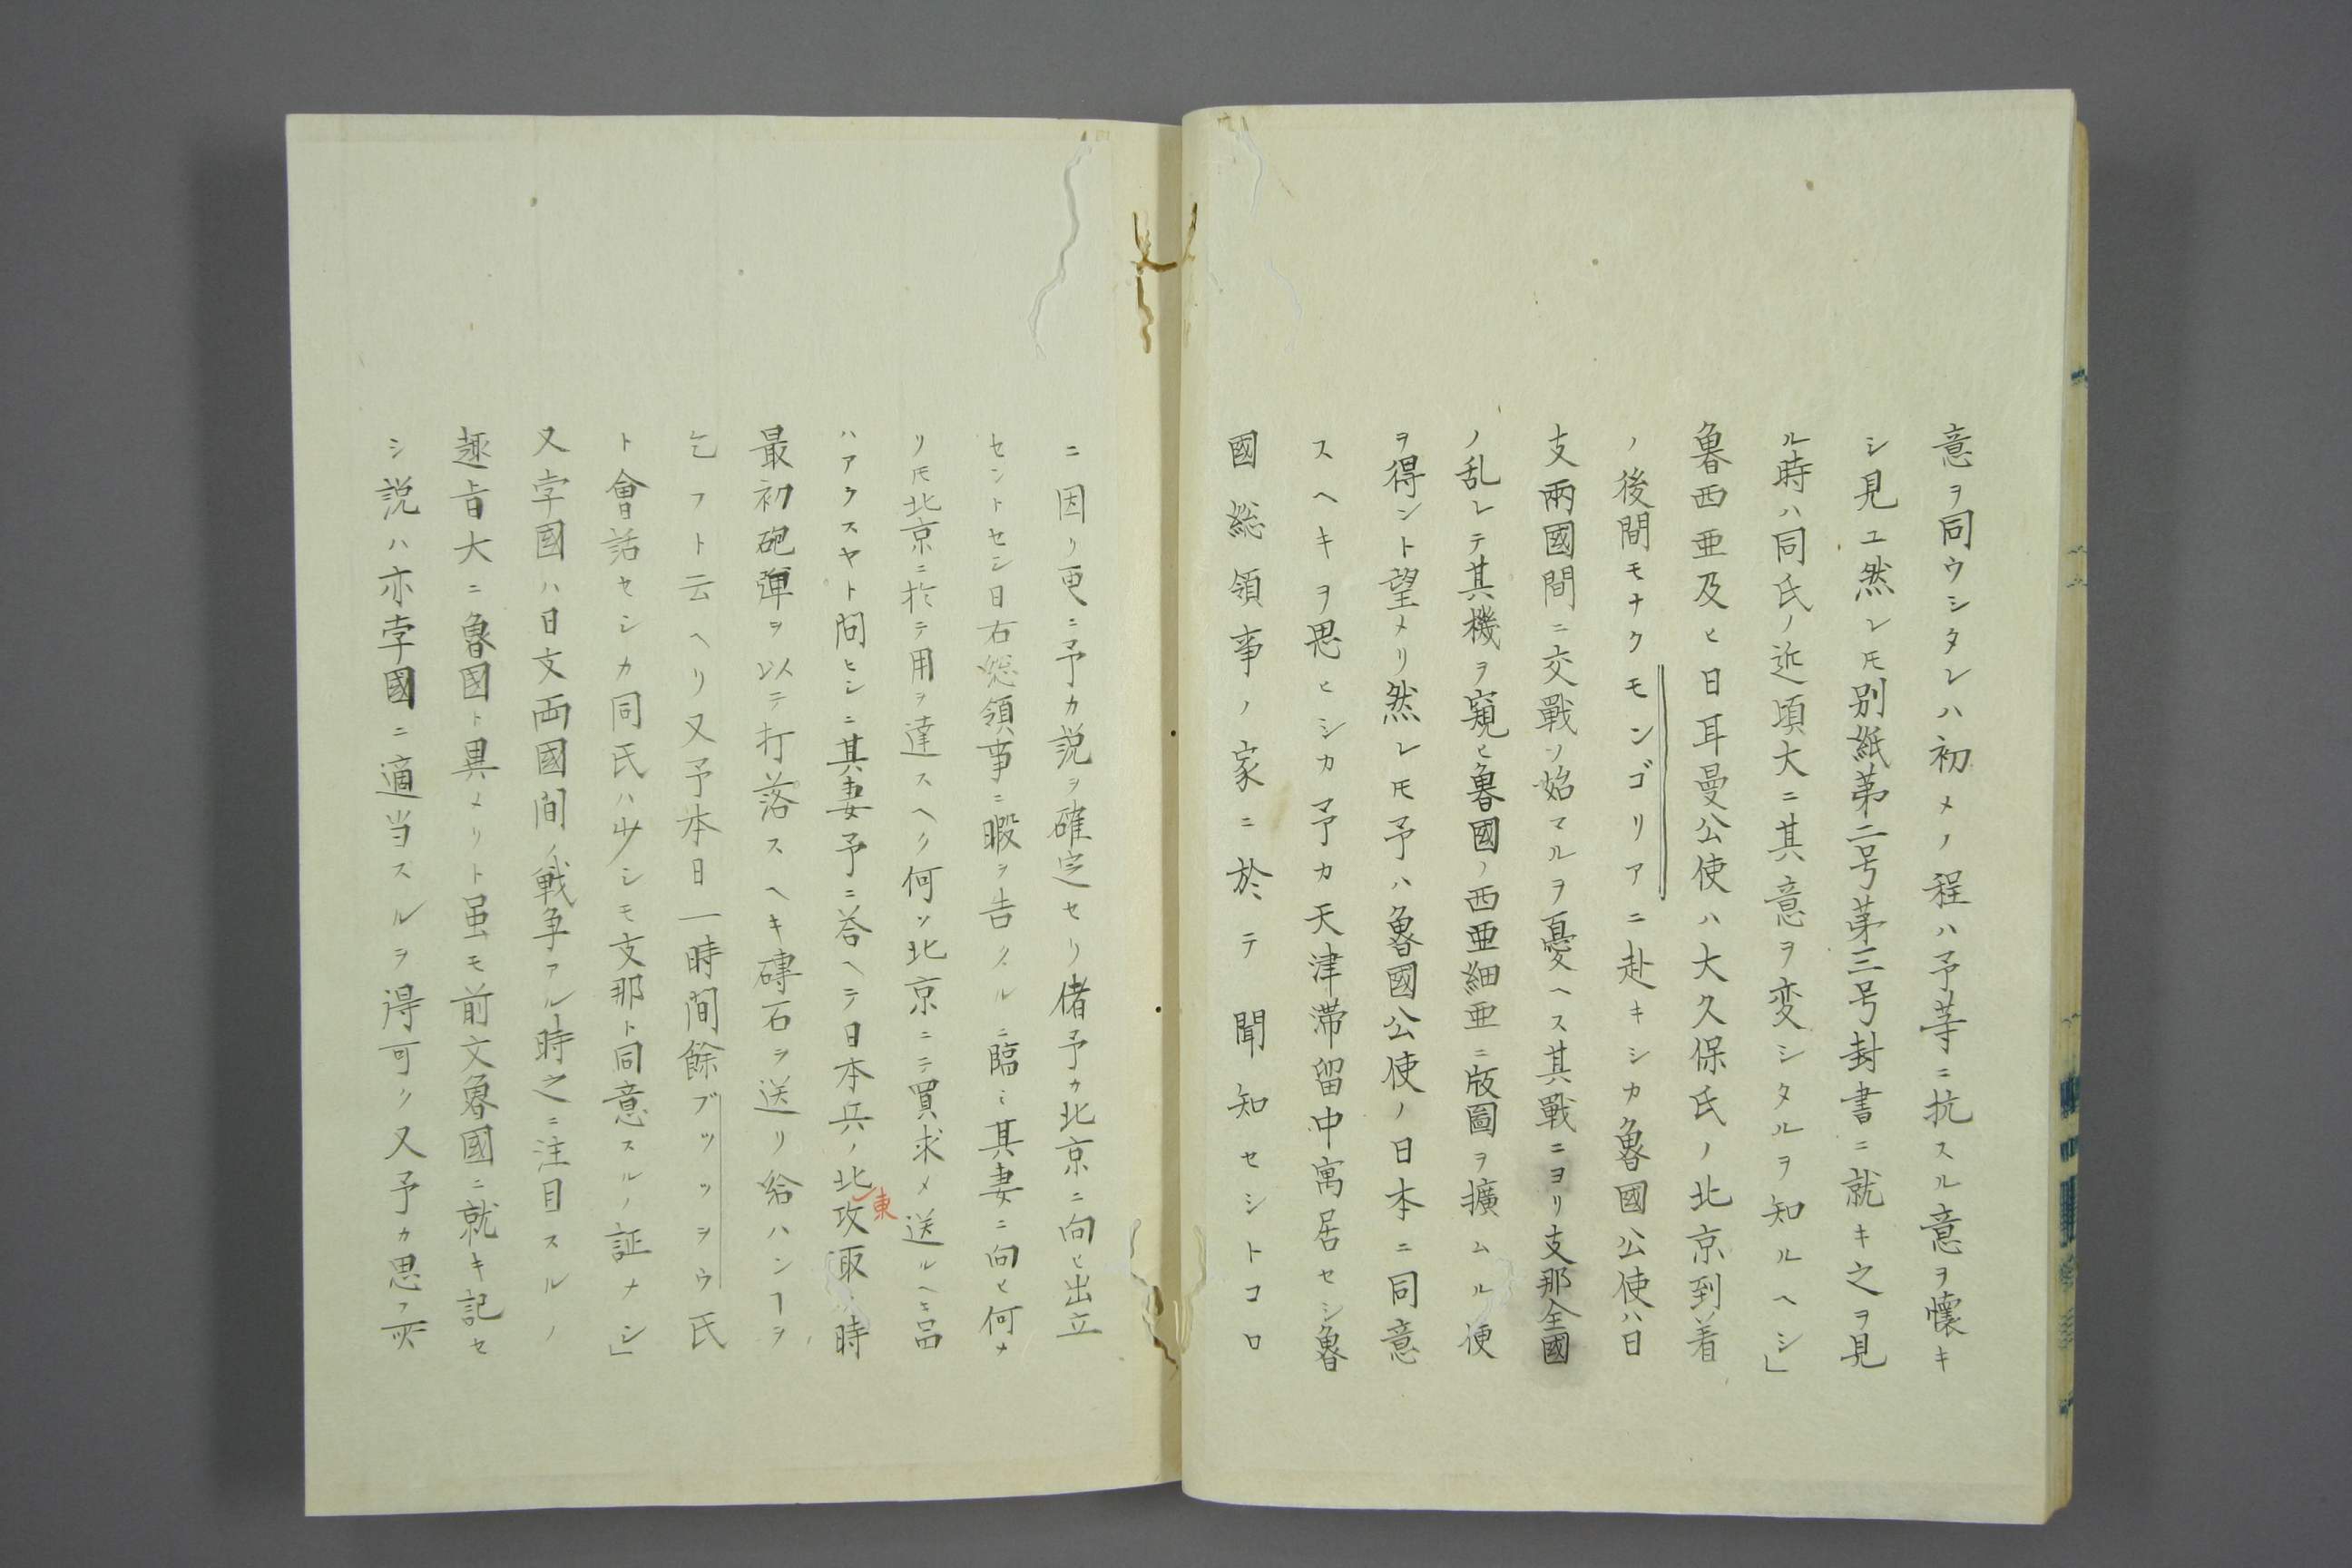 意ヲ同ウシタレハ初メノ程ハ予等ニ抗スル意ヲ懐キ
シ見ユ然レ𪜈別紙第二号第三号封書ニ就キ之ヲ見
ル時ハ同氏ノ近頃大ニ其意ヲ変シタルヲ知ルヘシ」
魯西亜及ヒ日耳曼公使ハ大久保氏ノ北京到着
ノ後間モナクモンゴリアニ赴キシカ魯國公使ハ日
支兩國間ニ交戰ソ始マルヲ憂ヘス其戰ニヨリ支那全國
ノ乱レテ其機ヲ窺ヒ魯國ノ西亜細亜ニ版圖ヲ擴ムル便
ヲ得ント望メリ然レ𪜈予ハ魯國公使ノ日本ニ同意
スヘキヲ思ヒシカ予カ天津滞留中寓居セシ魯
國総領事ノ家ニ於テ聞知セシトコロ
ニ因リ更ニ予カ説ヲ確定セリ偖予カ北京ニ向ヒ出立
セントセシ日右総領事ニ暇ヲ告クルニ臨ミ其妻ニ向ヒ何ナ
リ𪜈北京ニ於テ用ヲ達スヘク何ソ北京ニテ買求メ送ルヘキ品
ハアラスヤト問ヒシニ其妻予ニ荅ヘテ日本兵ノ北攻取ノ時
東
最初砲彈ヲ以テ打落スヘキ磚石ヲ送リ給ハンヿヲ
乞フト云ヘリ又予本日一時間餘ブッツヲウ氏
ト會話セシカ同氏ハ少シモ支那ト同意スルノ証ナシ」
又孛國ハ日支両國間ノ戦争アル時之ニ注目スルノ
趣旨大ニ魯國ト異メリト虽モ前文魯國ニ就キ記セ
シ説ハ亦孛國ニ適当スルヲ得可ク又予カ思フ所